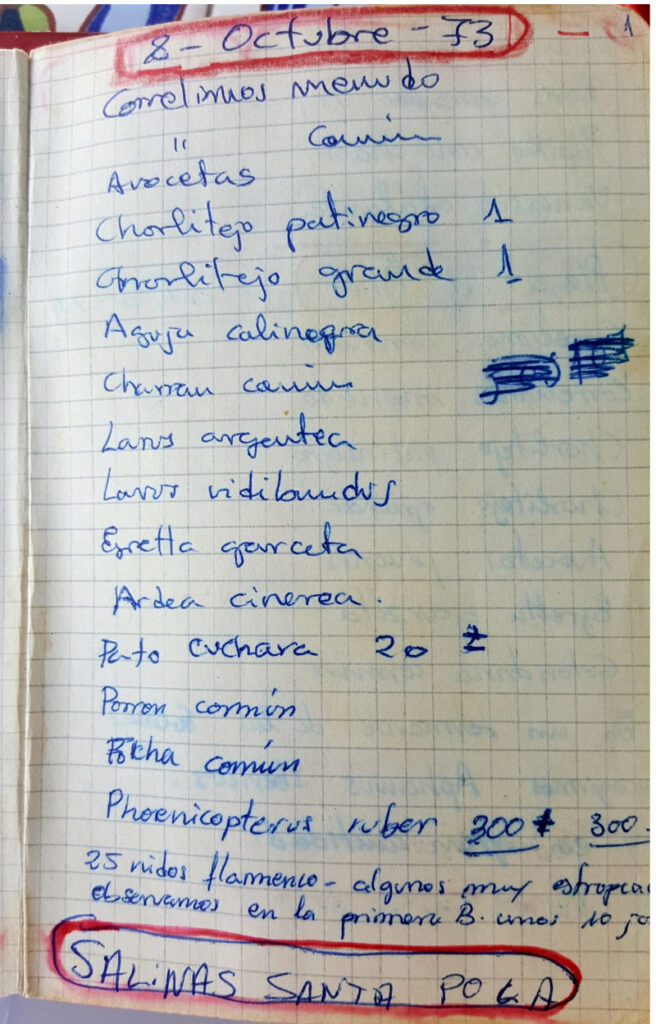 8 - Octubre - 73 - 1
Correlimos menudo
" Común
Avocetas
Chorlitejo patinegro 1
Chorlitejo grande 1
Aguja colinegra
Charran común
Larus argentea
Larus ridibundus
Egretta garceta
Ardea cinerea.
Pato cuchara 20 ±
Porron común
Focha común
Phoenicopterus ruber 300 ± 300.
25 nidos flamenco - algunos muy estropea
observamos en la primera B. unos 10 jo
SALINAS SANTA POLA